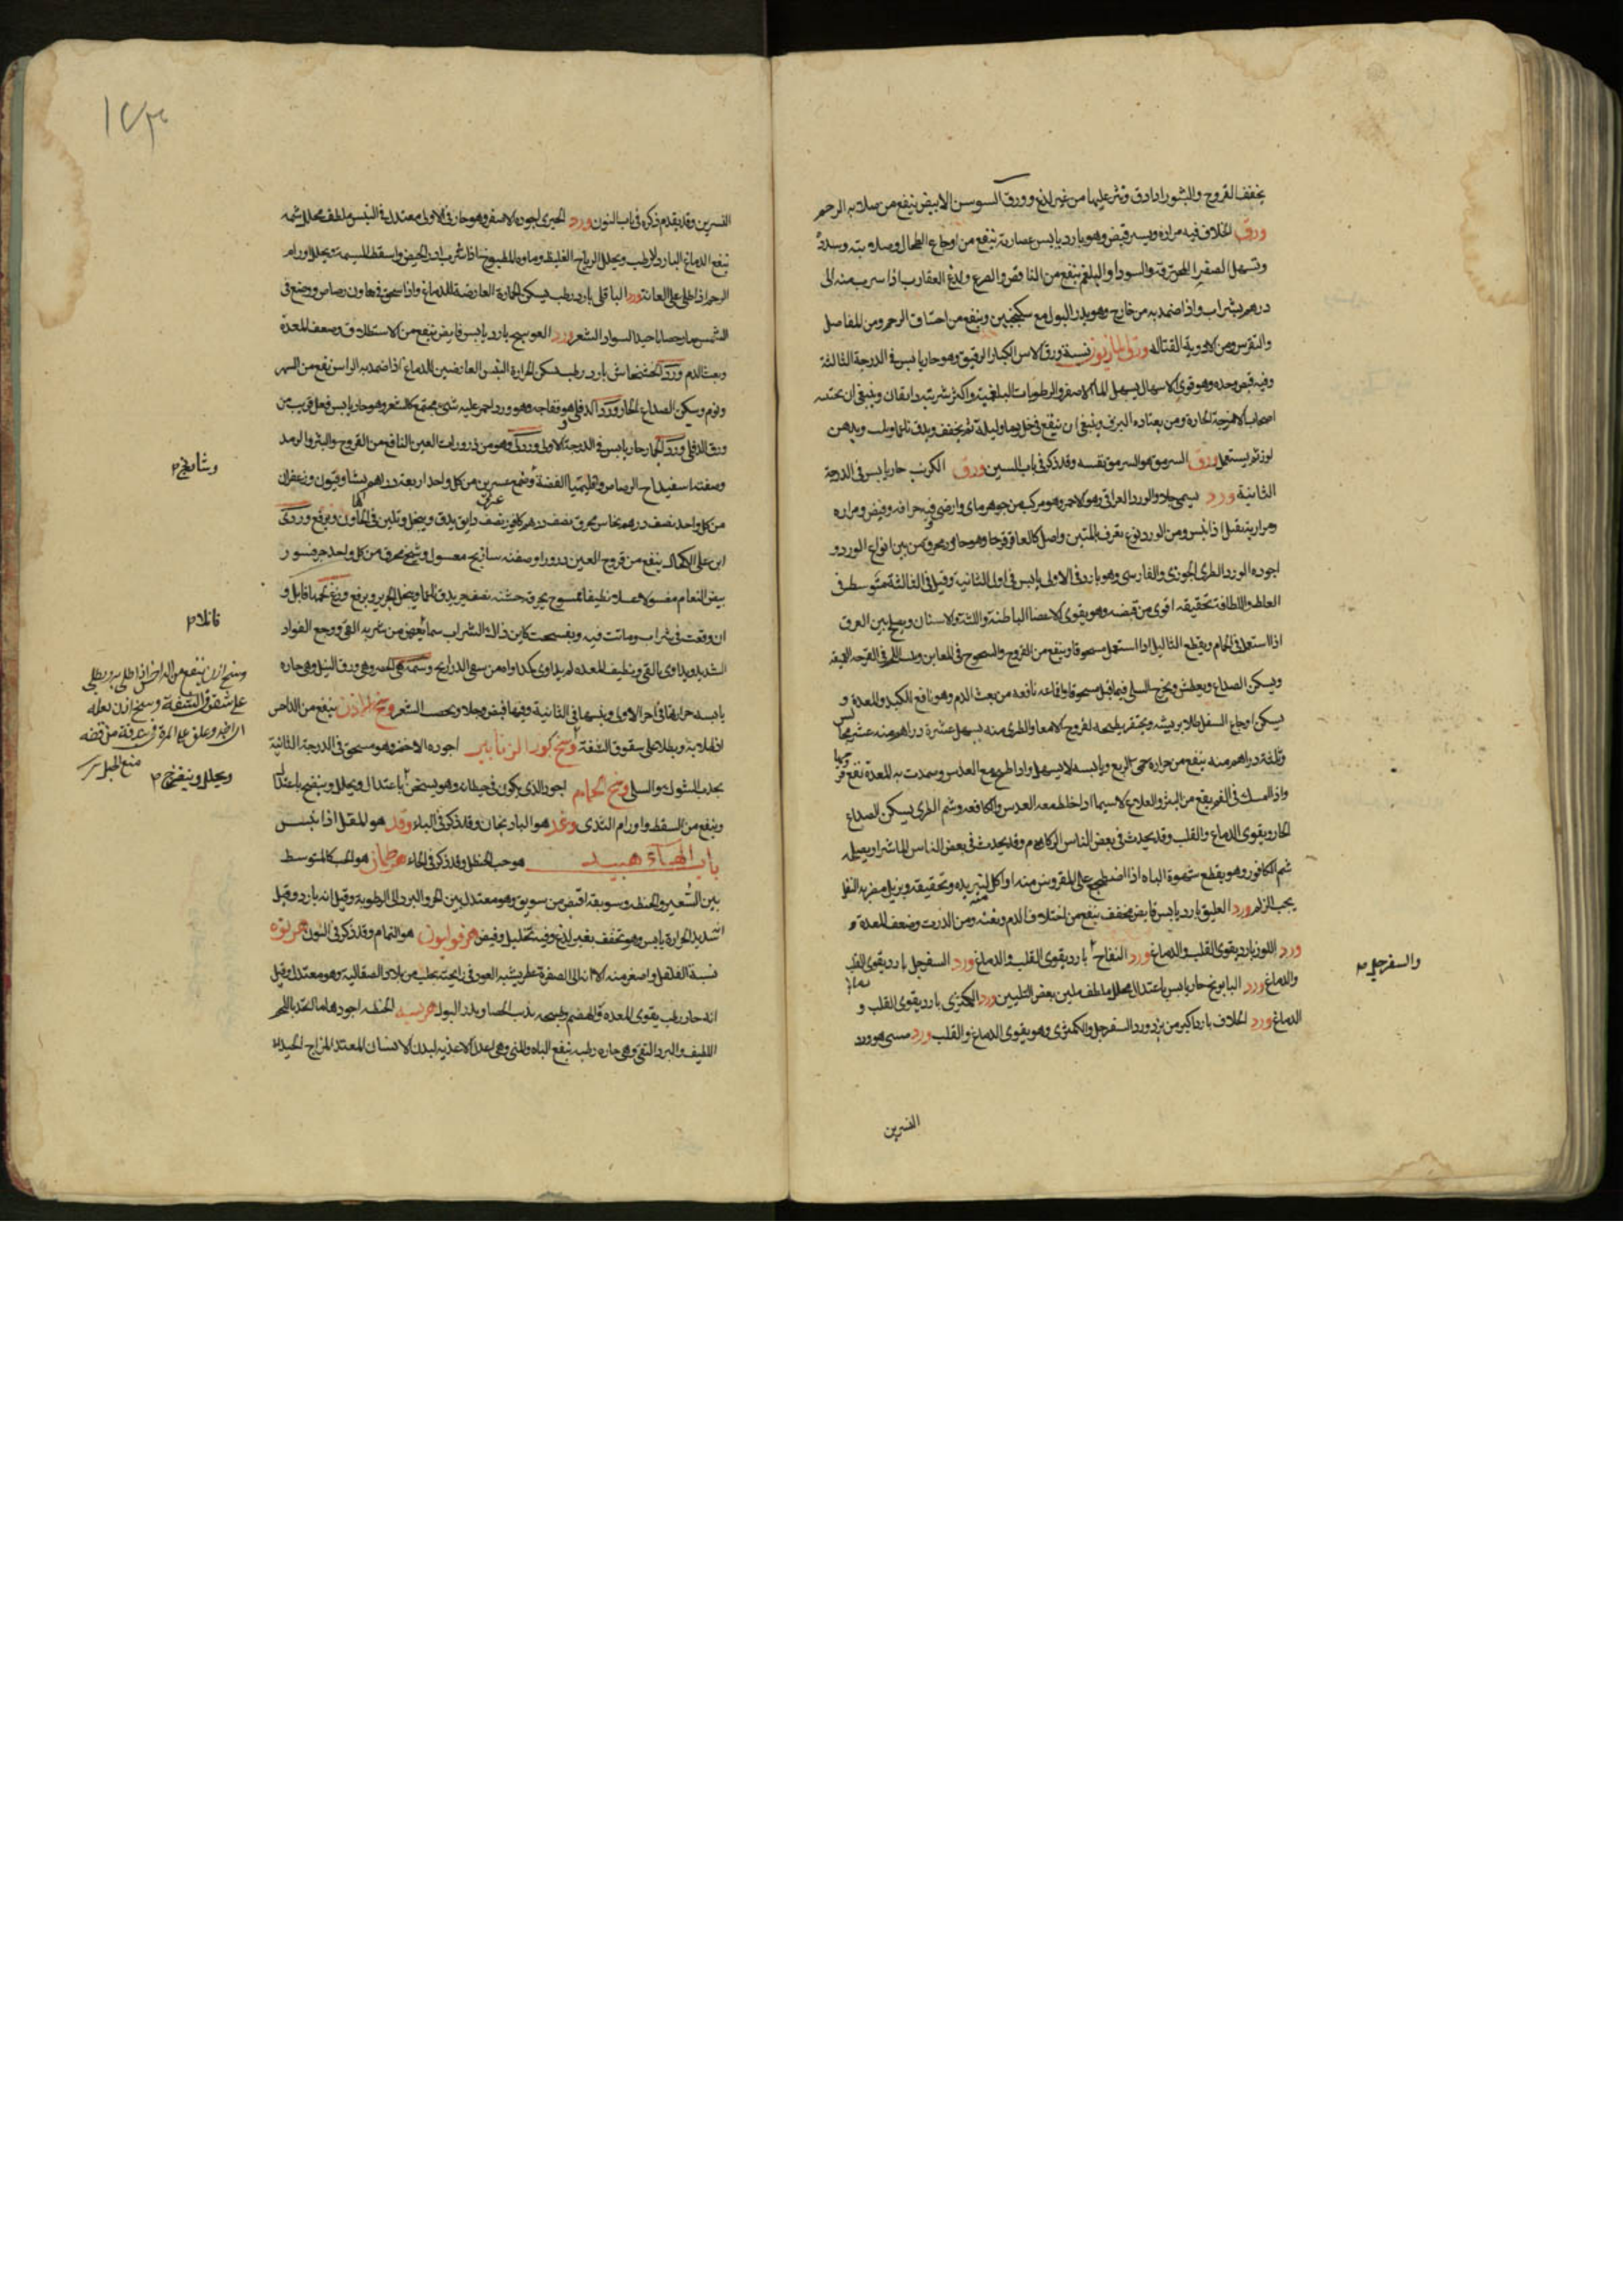 يجفف القروح والبثور اذا دق ونثر عليها من غير لذع وورق السوسن الابيض ينفع من صلابه الرحم
ورق الخلاف فيه مراره ويسير قبض وهو بارد يابس عصارته تنفع من اوجاع الطحال وصلابته وسدده
وتسهل الصفرا المحترقة والسودا والبلغم ينفع من النافض والصرع ولدغ العقارب اذا شرب منه الى
درهم بشراب واذا ضمد به من خارج وهو يدر البول مع سكنجبين وينفع من اختناق الرحم ومن المفاصل
والنقرس ومن الادوية القتاله ورق المازريون نسبة ورق الاس الكبار الرقيق وهو حار يابس في الدرجة الثالثة
وفيه قبض وحده وهو قوي الاسهال يسهل الما الاصفر والرطوبات البلغمية واكثر شربته دانقان وينبغي ان يجتنبه
اصحاب الامزجة الحارة ومن يعتاده النزف وينبغي ان ينقع في خل يوما وليلة ثم يجفف ويدق ناعما ويلت بدهن
لوز ثم يستعمل ورق السرمق هو السرمق نفسه وقد ذكر في باب السين ورق الكرنب حار يابس في الدرجة
الثانية ورد يسمى جلا والورد العراقي وهو الاحمر وهو مركب من جوهر ماي وارضي فيه حرافه وقبض ومراره
ومرارته تقل اذا يبس ومن الورد نوع يعرف بالمنتن واصل كالعاقرقرحا وهو حار محرق من بين انواع الورد و
اجوده الورد الطري الجوزي والفارسي وهو بارد في الاولى يابس في اول الثانية وقيل في الثالثة متوسط في
الغلظ واللطافة تجفيفه اقوى من قبضه وهو يقوي الاعضا الباطنة واللثة والاسنان ويصلح نتن العرق
اذا استعمل في الحمام ويقطع الثاليل اذا استعمل مسحوقا وينفع من القروح والسحوج في المغابن وينبت اللحم في القروح العميقه
ويسكن الصداع ويعطش ويخرج السلى واقماعه نافعه من نفث الدم وهو نافع الكبد والمعدة و
يسكن اوجاع السفل طلا بريشه ويحتقن بطبيخه لقروح الامعا والطري منه يسهل عشرة دراهم منه عشر مجالس
وثلثة دراهم منه ينفع من حرارة حمى الربع ويابسه لا يسهل واذا طبخ مع العدس وضمدت به المعدة نفع
واذا امسك في الفم ينفع من البثور والقلاع لاسيما اذا خلط معه العدس والكافور وشم الطري يسكن الصداع
الحار ويقوي الدماغ والقلب وقد يحدث في بعض الناس الزكام وقد يحدث في بعض الناس العاشرا ويصلحه
شم الكافور وهو يقطع شهوة الباه اذا اضطجع على المفروش منه او اكل لتبريده وتجفيفه ويزيل مضرته النقل
بحب الزلم ورد العليق بارد يابس قابض مجفف ينفع من اختلاف الدم ونفثه ومن الذرب وضعف المعدة
ورد اللوز بارد يقوي القلب والدماغ ورد التفاح بارد يقوي القلب والدماغ ورد السفرجل بارد يقوي القلب
والدماغ ورد البابونج حار يابس باعتدال محلل ملطف ملين بعض التليين ورد الكمثرى بارد يقوي القلب و
الدماغ ورد الخلاف بارد اكبر من برد ورد السفرجل والكمثرى وهو يقوي الدماغ والقلب ورد صيني هو ورد
والسفرجل
النسرين
١٧٣
النسرين وقد يقدم ذكره في باب النون ورد الخيري اجوده الاصفر وهو حار في الاولى معتدل في اليبس ملطف محلل شمه
ينفع الدماغ البارد الرطب ويحلل الرياح الغليظه وماوه المطبوخ اذا شرب ادر الحيض واسقط المشيمة ويحلل اورام
الرحم اذا طلي على العانة ورد الباقلى بارد رطب يسكن الحرارة العارضة للدماغ واذا سحق في هاون رصاص ووضع في
الشمس صار خضابا جيدا لسواد الشعر ورد العوسج بارد يابس قابض ينفع من الاستطلاق وضعف المعدة
ونفث الدم ورد الخشخاش بارد رطب يسكن الحرارة اليبس العارضين للدماغ اذا ضمد به الراس نفع من السهر
ونوم وسكن الصداع الحار ورد الدفلى هو فقاحه وهو ورد احمر عليه شيء مجتمع كالشعر وهو حار يابس فعل قريب من
ورق الدفلى ورد الحمار حار يابس في الدرجة الاولى وردي وهو من ذرورات العين النافع من القروح والبثر والرمد
وصفته اسفيداج الرصاص واقليميا الفضة وصمغ عربي من كل واحد اربعة دراهم نشا وافيون وزعفران
من كل واحد نصف درهم نحاس محرق نصف درهم كافور نصف دانق يدق وينخل ويلين في الهاون ويرفع وردي
ابن علي الكحال ينفع من قروح العين ذرورا وصفته ساذنج مغسول وشيح محرق من كل واحد جزء قشور
بيض النعام مغسولا نظيفا ممسوح يحرق نصف جزء يدق ناعما وينخل بحرير ويرفع وزغ لحمها قاتل و
ان وقعت في شراب وماتت فيه وتفسخت كان ذلك الشراب سما يعرض من شربه القي ووجع الفواد
الشديد ويداوي بالقي وتنظيف المعده ثم يداوي بمداواه من سقي الذراريح وسمة هي الخطر وهي ورق النيل وهي حاره
يابسه حرارتها في اخر الاولى ويبسها في الثانية وفيها قبض وجلا ويخضب الشعر وسخ الاذن ينفع من الداحس
اذا طلي به ويطلا على شقوق الشفة وسخ كور الزنابير اجوده الاخضر وهو مسخن في الدرجة الثانية
يجذب الشوك والسلى وسخ الحمام اجود الذي يكون في حيطانه وهو يسخن باعتدال ويحلل وينضج باعتدال
وينفع من السقطه واورام الثدي وغد هو الباذنجان وقد ذكر في الباء وقل هو المقل اذا يبس
باب الهاء هبيد هو حب الحنظل وقد ذكر في الحاء هرطمان هو الحب كالمتوسط
بين الشعير والحنطه وسويقه اقبض من سويق وهو معتدل بين الحر والبرد الى الرطوبة وقيل انه بارد وقيل
شديد الحرارة يابس وهو يجفف بغير لذع وفيه تحليل وقبض هرفوليون هو النمام وقد ذكر في النون هرنوه
نسبة الفلفل واصغر منه الا انه الى الصفرة عطر يشبه العود في رايحته يجلب من بلاد الصقالبه وهو معتدل وقيل
انه حار رطب يقوي المعده والهضم ويذيب الحصا ويدر البول هريسه الحنطه اجودها ما اتخذ باللحم
اللطيف والبر النقي وهي حاره رطبه تنفع الباه والمني وهي اعدل الاغذيه لبدن الانسان المعتدل المزاج الجيدا
قاتلا
وسخ اذن ينفع من الداحس اذا طلي به ويطلى
على شقوق الشفة وسخ اذن بغله
ويحلل وينضج